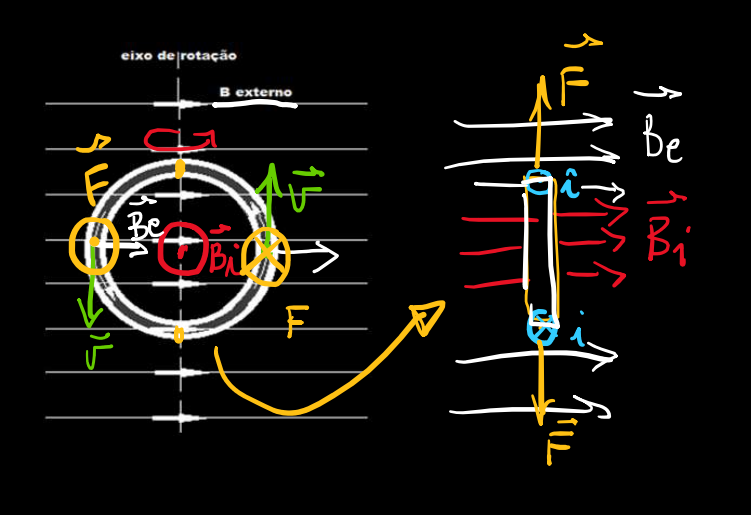 eixo de rotação
B externo
F
Be
Bi
v
v
F
F
Be
i
Bi
i
F